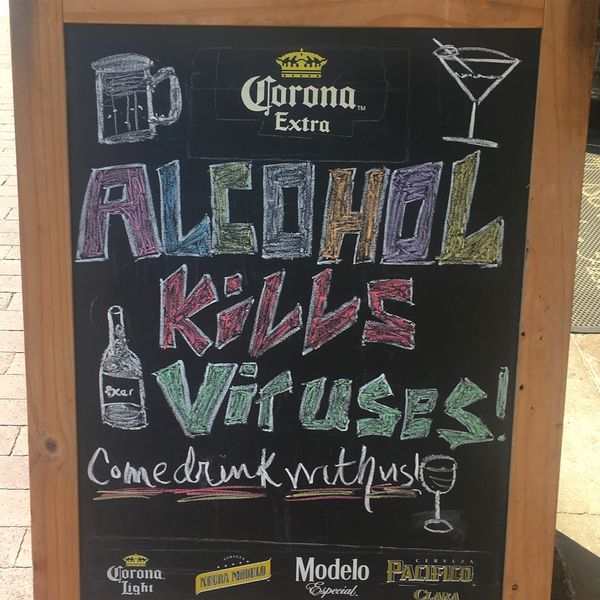 Corona™
Extra
ALCOHOL
KiLLS
Viruses!
Come drink with us!
Beer
Corona
Light
CERVEZA
NEGRA MODELO
Modelo
Especial
CERVEZA
PACIFICO
CLARA